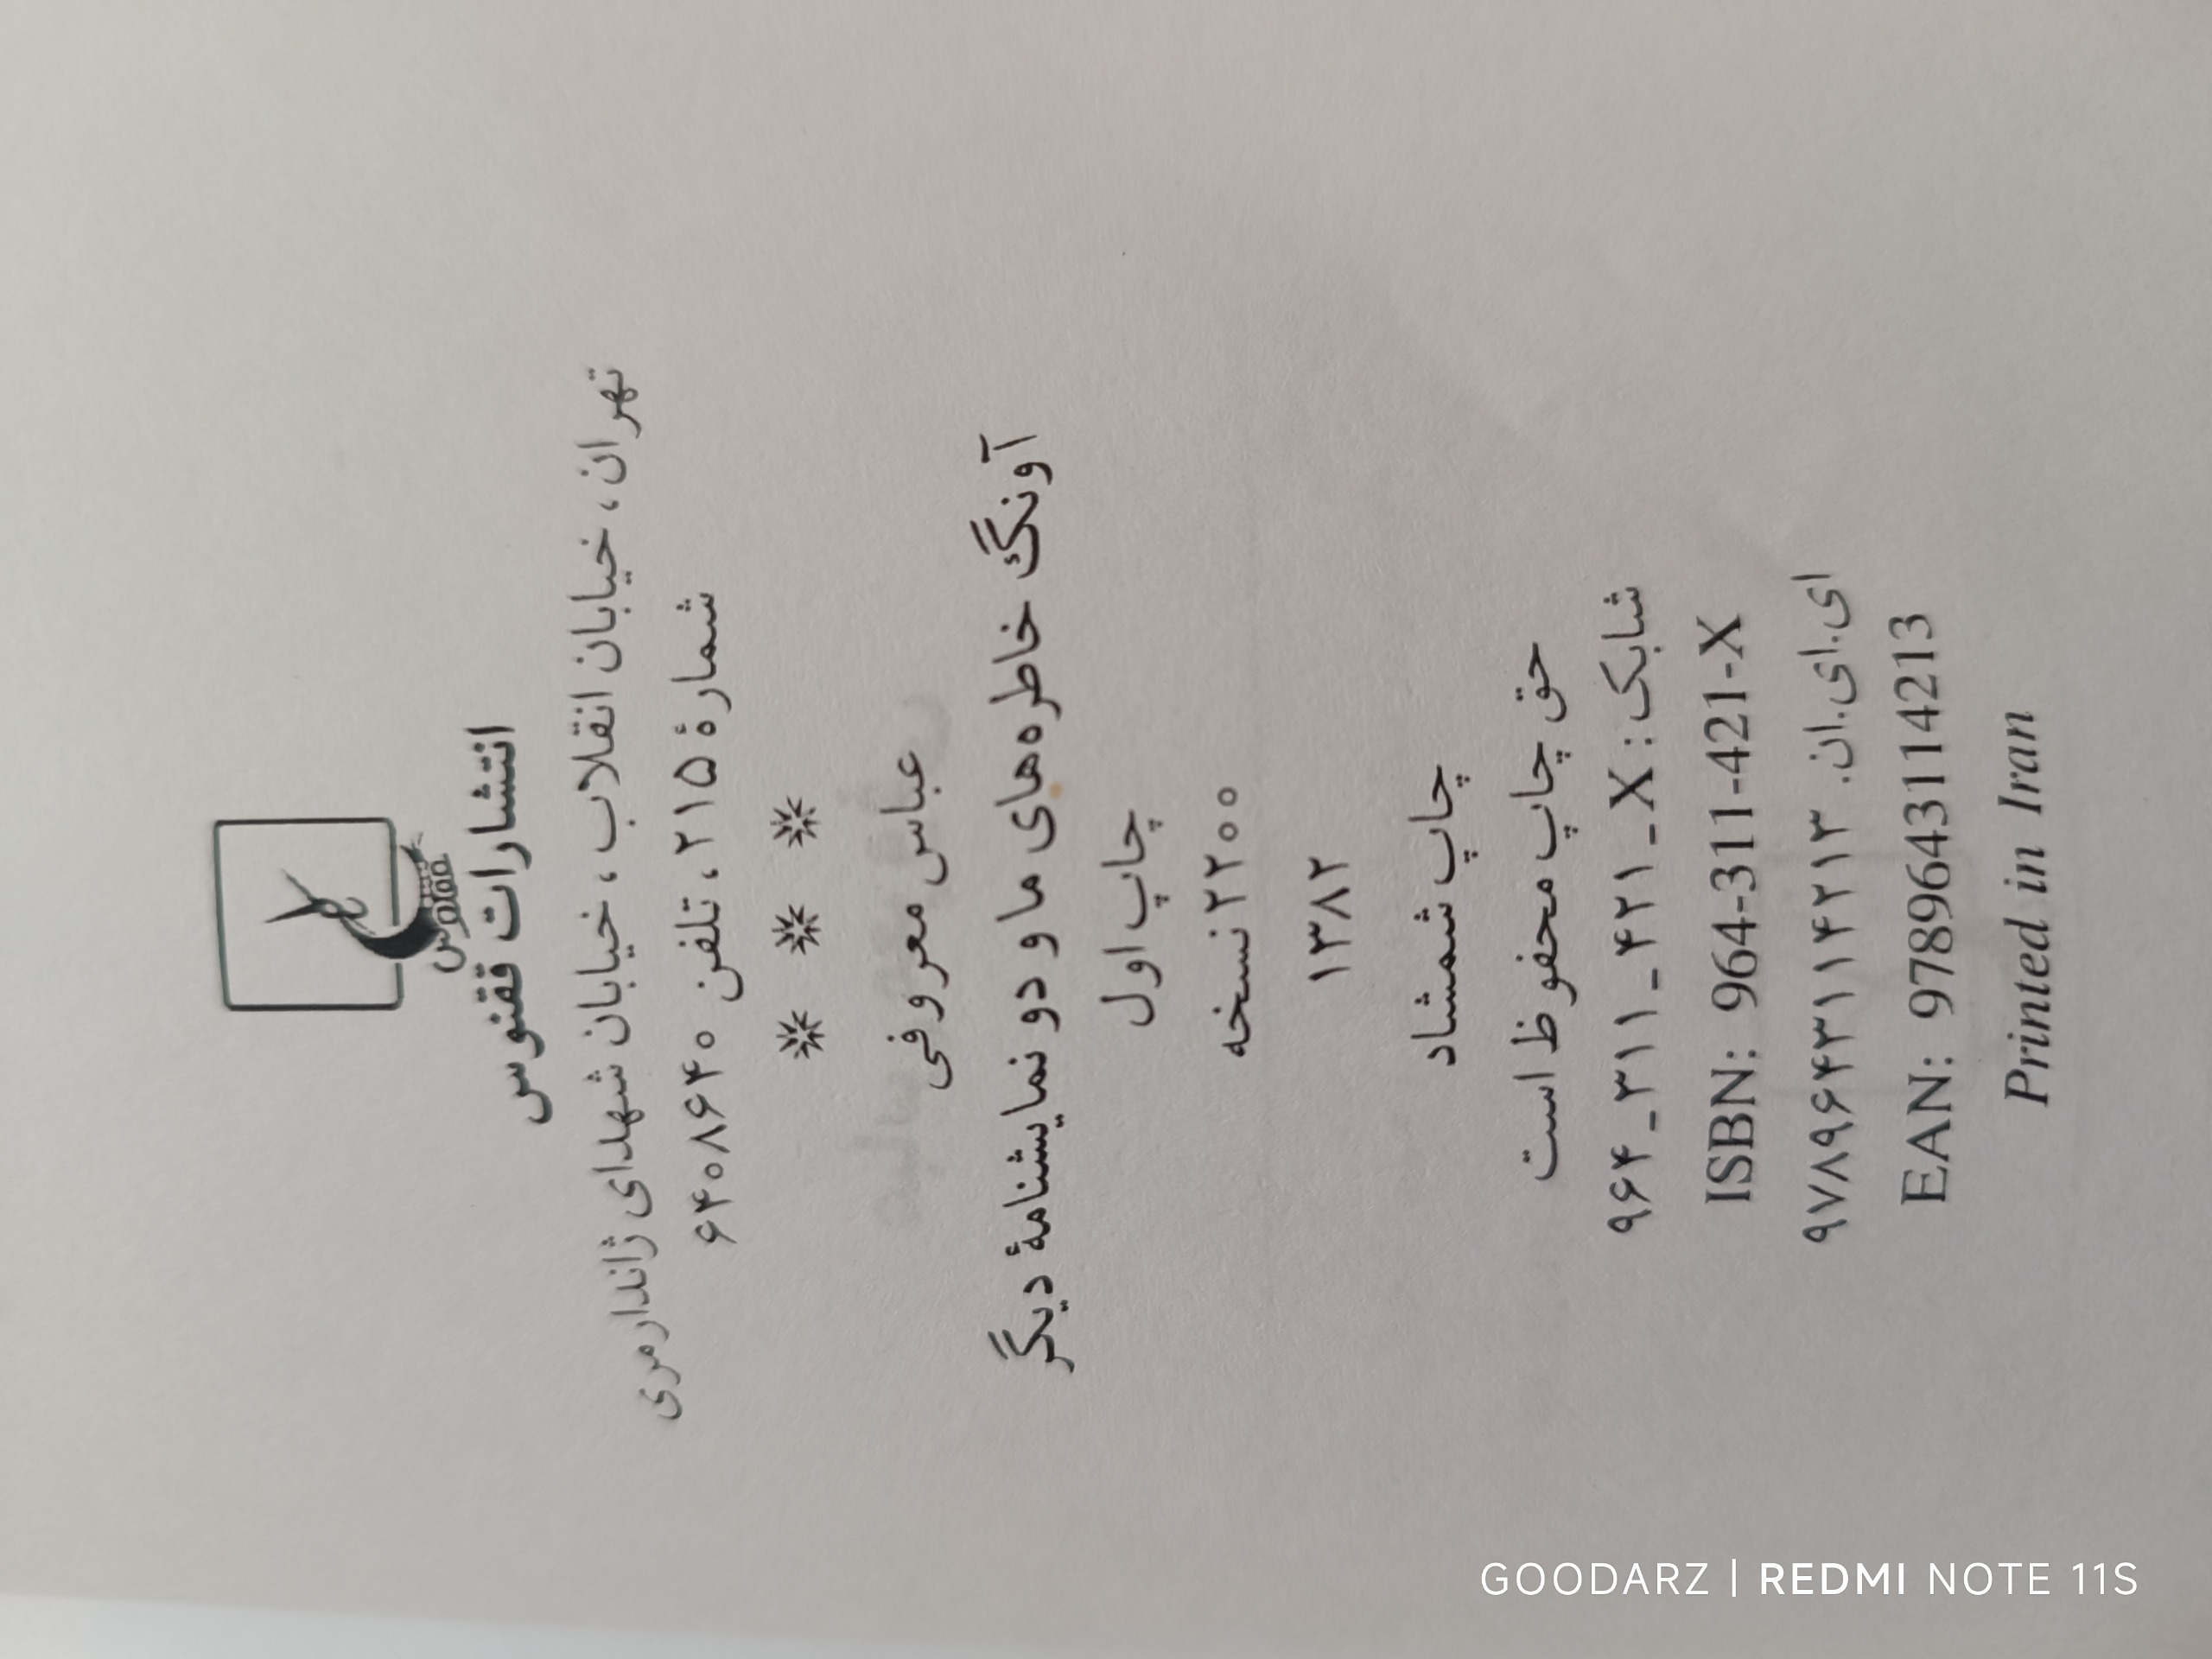 ققنوس
انتشارات ققنوس
تهران، خیابان انقلاب، خیابان شهدای ژاندارمری
شمارهٔ ۲۱۵، تلفن ۶۴۰۸۶۴۰
* * *
عباس معروفی
آونگ خاطره‌های ما و دو نمایشنامهٔ دیگر
چاپ اول
۲۲۰۰ نسخه
۱۳۸۲
چاپ شمشاد
حق چاپ محفوظ است
شابک: X ـ ۴۲۱ ـ ۳۱۱ ـ ۹۶۴
ISBN: 964-311-421-X
ای.ای.ان. ۹۷۸۹۶۴۳۱۱۴۲۱۳
EAN: 9789643114213
Printed in Iran
GOODARZ | REDMI NOTE 11S